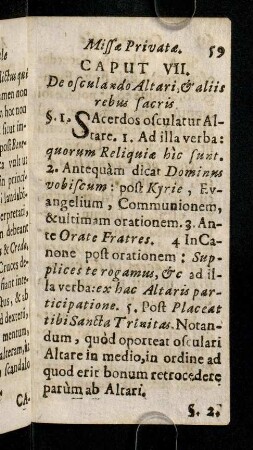 Missæ Privatæ. 59
CAPUT VII.
De osculando Altari, & aliis
rebus sacris
§. 1. SAcerdos osculatur Al-
tare. 1. Ad illa verba:
quorum Reliquiæ hìc sunt.
2. Antequàm dicat Dominus
vobiscum: post Kyrie, Ev-
angelium, Communionem,
& ultimam orationem. 3. An-
te Orate Fratres. 4 In Ca-
none post orationem: Sup-
plices te rogamus, &c ad il-
la verba: ex hac Altaris par-
ticipatione. 5. Post Placeat
tibi Sancta Trinitas. Notan-
dum, quòd oporteat osculari
Altare in medio, in ordine ad
quod erit bonum retrocedere
parùm ab Altari.
§. 2.
CA-